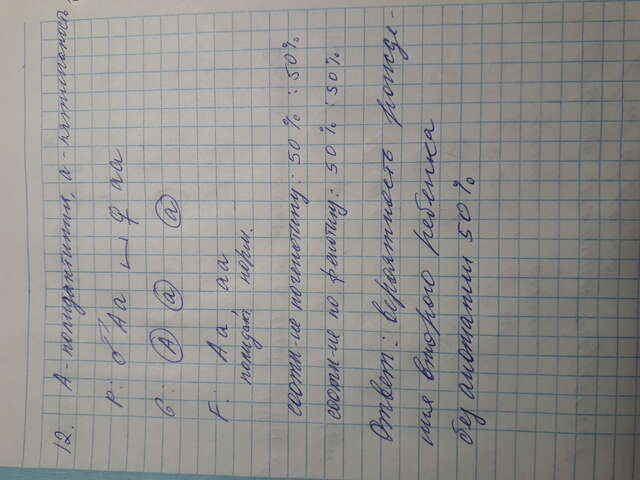 12. А - полидактилия, а - пятипалость
P: ♂ Аа ♀ аа
G: А а а
F: Аа, аа
полидакт. норм.
соотн-ие по генотипу: 50% : 50%
соотн-ие по фенотипу: 50% : 50%
Ответ: вероятность рожде-
ния второго ребенка
без аномалии 50%